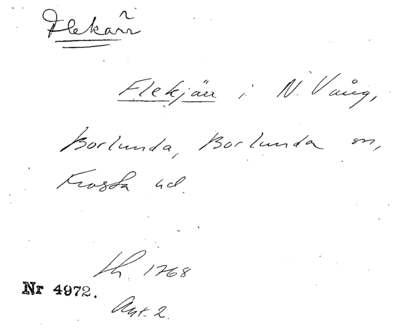 Flekärr
Flekjärr i N. Vång,
Borlunda, Borlunda sn,
Frosta hd.
Lh. 1768
Nr 4972.
Akt. 2.